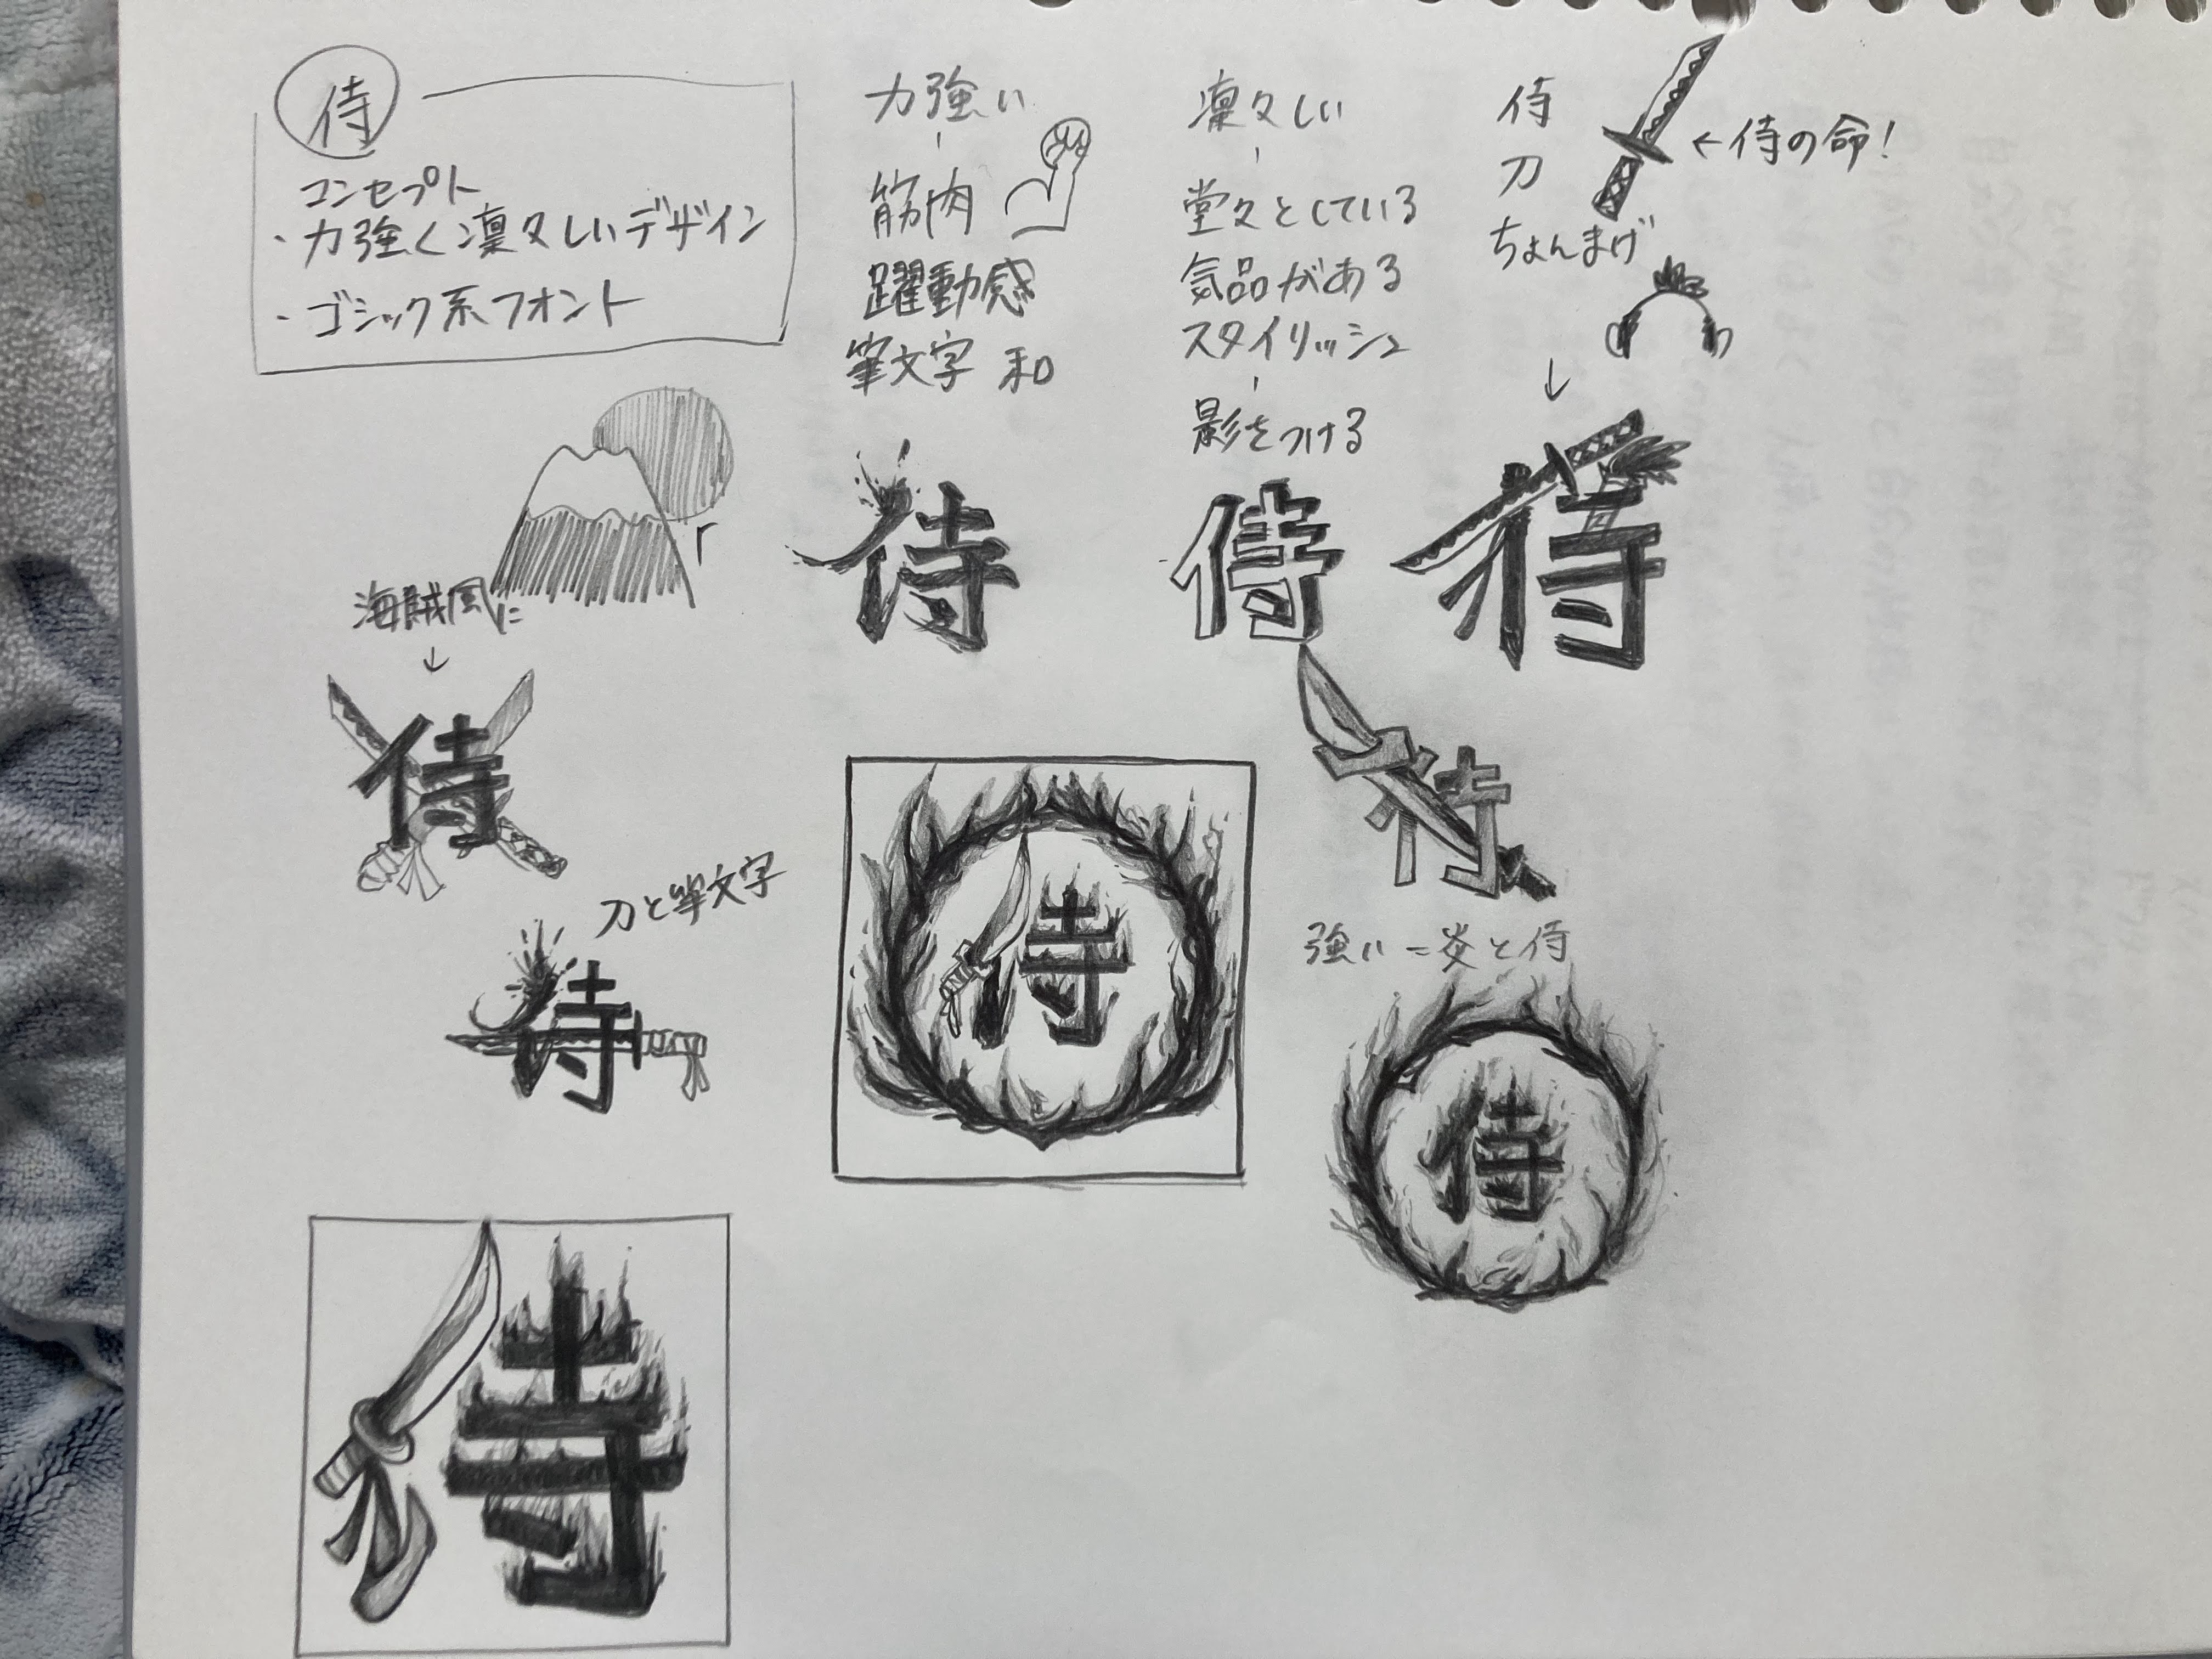 侍
コンセプト
・力強く凛々しいデザイン
・ゴシック系フォント
力強い
筋肉
躍動感
筆文字 和
侍
凛々しい
堂々としている
気品がある
スタイリッシュ
影をつける
侍
侍
刀
←侍の命!
ちょんまげ
↓
侍
海賊風に
↓
侍
刀と筆文字
侍
侍
侍
強い=炎と侍
侍
侍